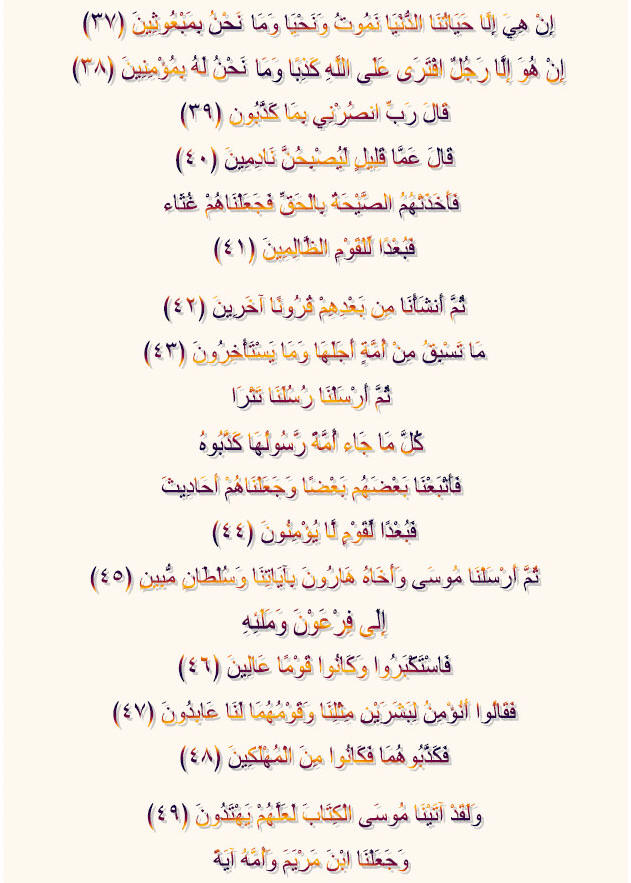 إِنْ هِيَ إِلَّا حَيَاتُنَا الدُّنْيَا نَمُوتُ وَنَحْيَا وَمَا نَحْنُ بِمَبْعُوثِينَ (٣٧)
إِنْ هُوَ إِلَّا رَجُلٌ افْتَرَى عَلَى اللَّهِ كَذِبًا وَمَا نَحْنُ لَهُ بِمُؤْمِنِينَ (٣٨)
قَالَ رَبِّ انصُرْنِي بِمَا كَذَّبُونِ (٣٩)
قَالَ عَمَّا قَلِيلٍ لَيُصْبِحُنَّ نَادِمِينَ (٤٠)
فَأَخَذَتْهُمُ الصَّيْحَةُ بِالْحَقِّ فَجَعَلْنَاهُمْ غُثَاء
فَبُعْدًا لِّلْقَوْمِ الظَّالِمِينَ (٤١)
ثُمَّ أَنشَأْنَا مِن بَعْدِهِمْ قُرُونًا آخَرِينَ (٤٢)
مَا تَسْبِقُ مِنْ أُمَّةٍ أَجَلَهَا وَمَا يَسْتَأْخِرُونَ (٤٣)
ثُمَّ أَرْسَلْنَا رُسُلَنَا تَتْرَا
كُلَّ مَا جَاء أُمَّةً رَّسُولُهَا كَذَّبُوهُ
فَأَتْبَعْنَا بَعْضَهُم بَعْضًا وَجَعَلْنَاهُمْ أَحَادِيثَ
فَبُعْدًا لِّقَوْمٍ لَّا يُؤْمِنُونَ (٤٤)
ثُمَّ أَرْسَلْنَا مُوسَى وَأَخَاهُ هَارُونَ بِآيَاتِنَا وَسُلْطَانٍ مُّبِينٍ (٤٥)
إِلَى فِرْعَوْنَ وَمَلَئِهِ
فَاسْتَكْبَرُوا وَكَانُوا قَوْمًا عَالِينَ (٤٦)
فَقَالُوا أَنُؤْمِنُ لِبَشَرَيْنِ مِثْلِنَا وَقَوْمُهُمَا لَنَا عَابِدُونَ (٤٧)
فَكَذَّبُوهُمَا فَكَانُوا مِنَ الْمُهْلَكِينَ (٤٨)
وَلَقَدْ آتَيْنَا مُوسَى الْكِتَابَ لَعَلَّهُمْ يَهْتَدُونَ (٤٩)
وَجَعَلْنَا ابْنَ مَرْيَمَ وَأُمَّهُ آيَةً